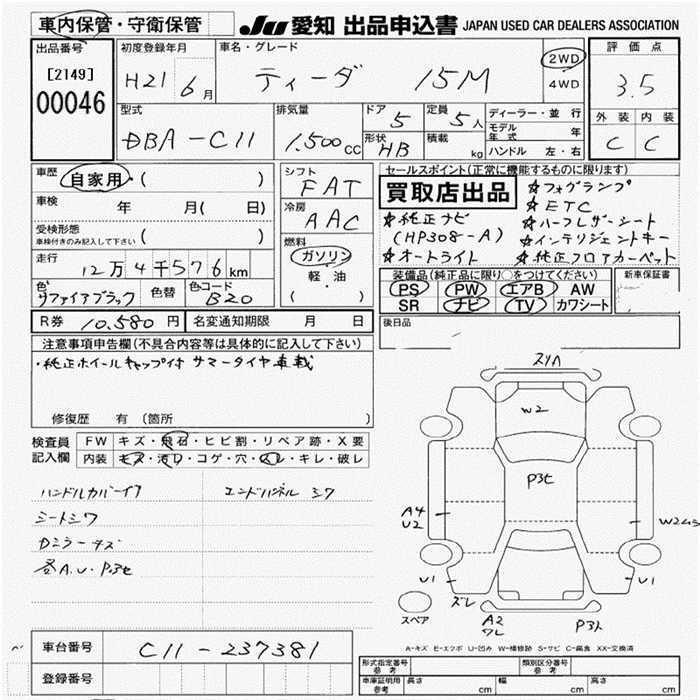 車内保管・守衛保管
JU 愛知 出品申込書 JAPAN USED CAR DEALERS ASSOCIATION
出品番号
[2149]
00046
初度登録年月
H21 6月
車名・グレード
ティーダ 15M
2WD
4WD
評価点
3.5
外装 内装
C C
型式
DBA-C11
排気量
1.500cc
ドア
5
形状
HB
定員
5人
積載
kg
ディーラー・並行
モデル年式 年
ハンドル 左・右
車歴
自家用・( )
車検
年 月( 日)
受検形態
車検付きのみ記入して下さい
( )
走行
12万4千576km
色
サファイアブラック
色替
色コード
B20
シフト
FAT
冷房
AAC
燃料
ガソリン
軽・油
( )
セールスポイント(正常に機能するものに限ります)
買取店出品
☆純正ナビ
(HP308-A)
☆オートライト
☆フォグランプ
☆ETC
☆ハーフレザーシート
☆インテリジェントキー
☆純正フロアカーペット
装備品(純正品に限り○をつけてください)
PS PW エアB AW
SR ナビ TV カワシート
新車保証書
後日品
R券 10.580円
名変通知期限 月 日
注意事項申告欄(不具合内容等は具体的に記入して下さい)
・純正ホイールキャップ付 サマータイヤ車載
修復歴 有(箇所 )
検査員記入欄
FW キズ・飛石・ヒビ割・リペア跡・X要
内装 キズ・汚レ・コゲ・穴・スレ・キレ・破レ
ハンドルカバーイタ
エンドパネル シワ
シートシワ
Dミラーキズ
A.U.P3セ
スリハ
W2
P3セ
A4
U2
W2ムラ
U1
U1
ズレ
A2
ワレ
P3ト
スペア
A-キズ E-エクボ U-凹み W-補修跡 S-サビ C-腐食 XX-交換済
車台番号
C11-237381
登録番号
形式指定番号
参考
類別区分番号
参考
車庫証明用
参考
長さ cm 幅 cm 高さ cm